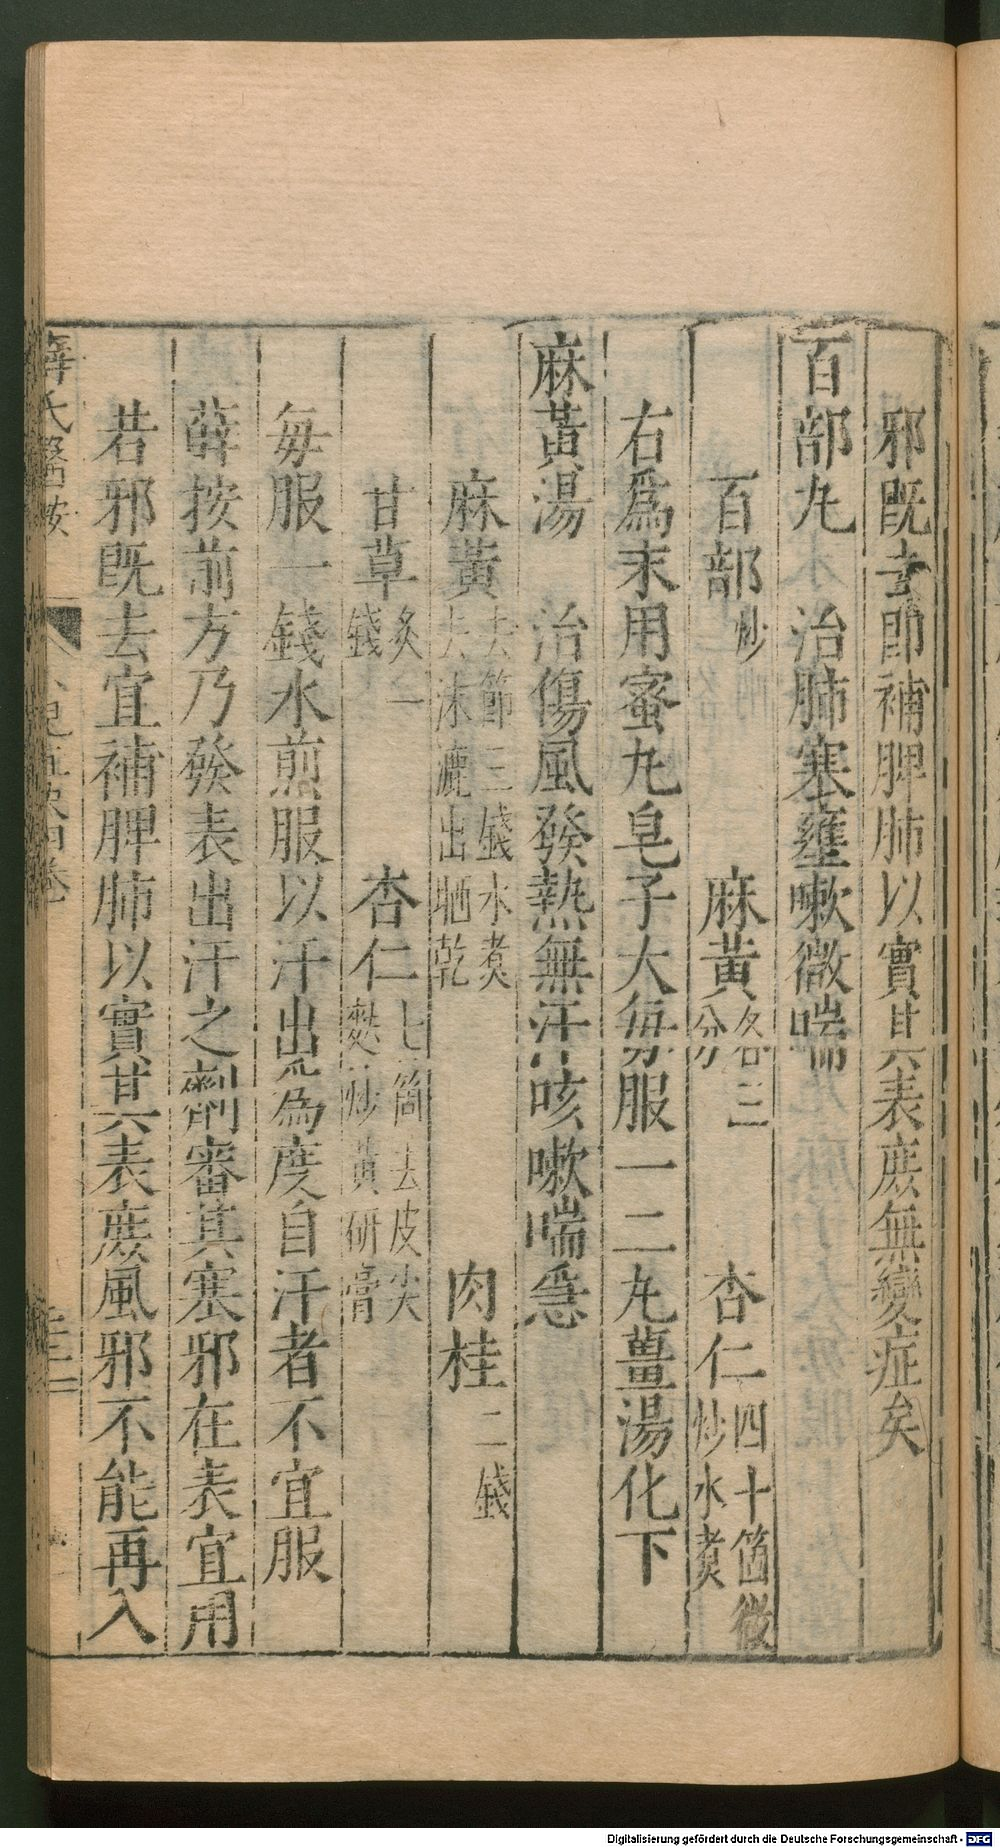 邪既去卽補脾肺以實其表庶無變症矣
百部丸　治肺塞壅嗽微喘
百部炒　麻黃各三分　杏仁四十箇微炒水煮
右爲末用蜜丸皂子大每服一二丸薑湯化下
麻黃湯　治傷風發熱無汗咳嗽喘急
麻黃去節三錢水煮去沫漉出晒乾　肉桂二錢
甘草炙一錢　杏仁七箇去皮尖麩炒黃研膏
每服一錢水煎服以汗出爲度自汗者不宜服
薛按前方乃發表出汗之劑審其寒邪在表宜用
若邪既去宜補脾肺以實其表庶風邪不能再入
薛氏醫按
Digitalisierung gefördert durch die Deutsche Forschungsgemeinschaft - DFG